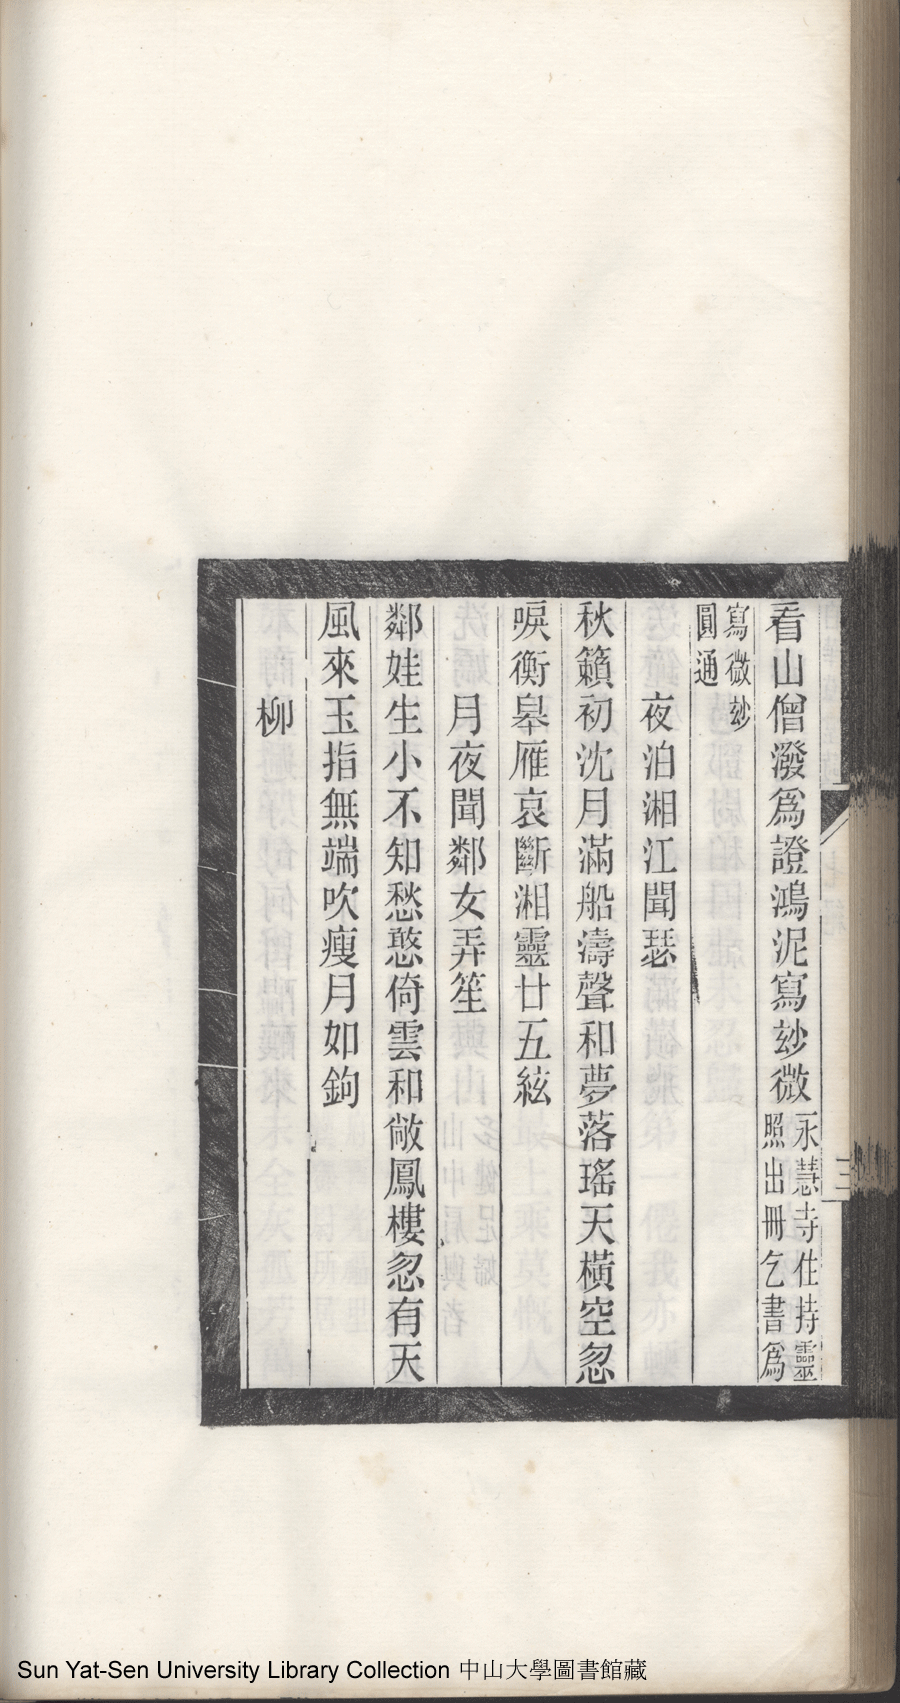 看山僧潑爲證鴻泥寫玅微永慧寺住持靈
照出冊乞書爲
寫微玅
圓通
夜泊湘江聞瑟
秋籟初沈月滿船濤聲和夢落瑤天橫空忽
唳衡皋雁哀斷湘靈廿五絃
月夜聞鄰女弄笙
鄰娃生小不知愁憨倚雲和敞鳳樓忽有天
風來玉指無端吹瘦月如鉤
柳
三
Sun Yat-Sen University Library Collection 中山大學圖書館藏